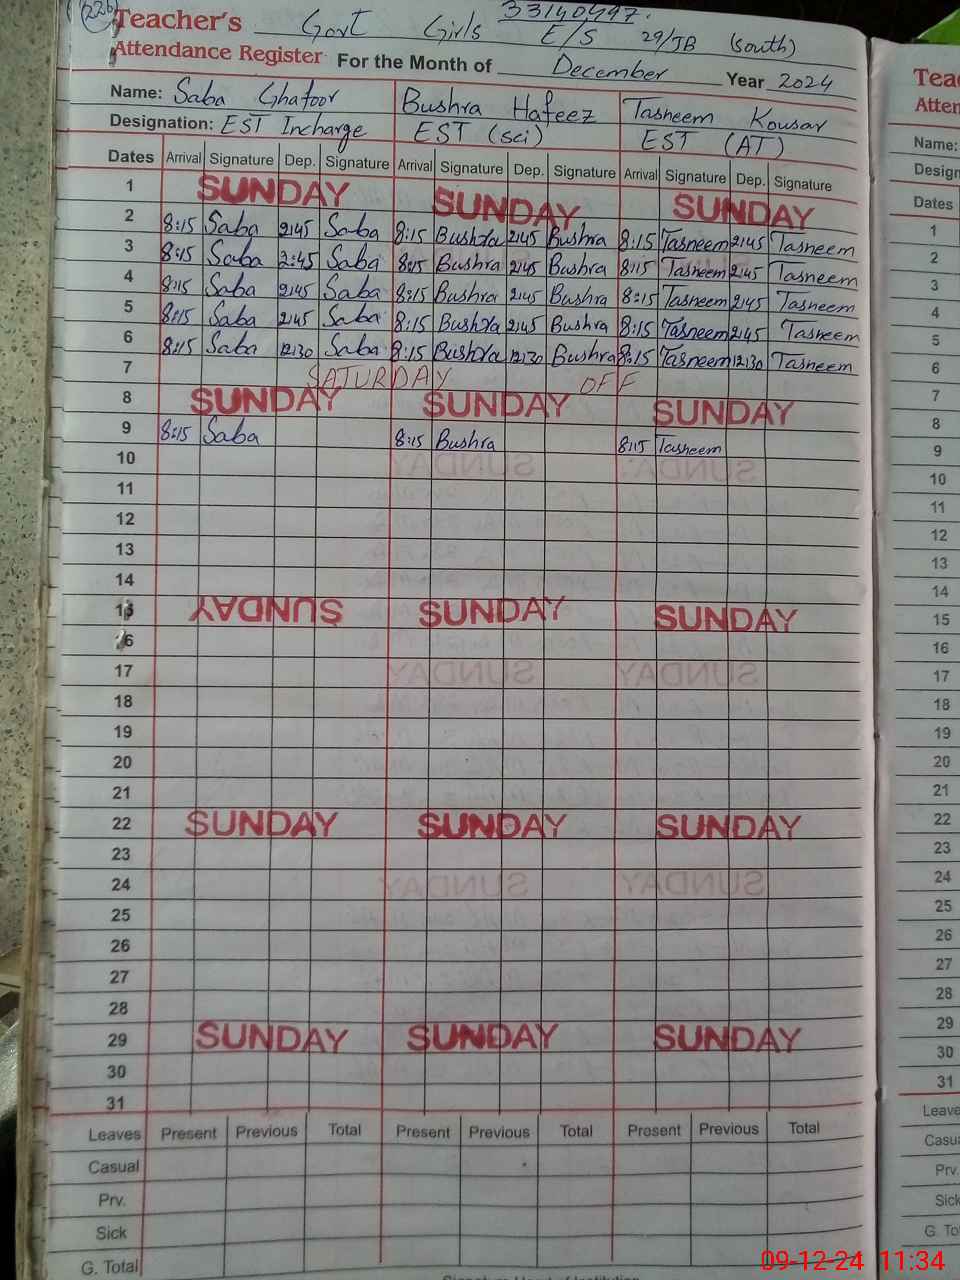 (226) Teacher's Govt Girls E/S 29/JB (south)
33140447.
Attendance Register For the Month of December Year 2024
Name: Saba Ghafoor Bushra Hafeez Tasneem Kousar
Designation: EST Incharge EST (sci) EST (AT)
Dates Arrival Signature Dep. Signature Arrival Signature Dep. Signature Arrival Signature Dep. Signature
1 SUNDAY SUNDAY SUNDAY
2 8:15 Saba 2:45 Saba 8:15 Bushra 2:45 Bushra 8:15 Tasneem 2:45 Tasneem
3 8:15 Saba 2:45 Saba 8:15 Bushra 2:45 Bushra 8:15 Tasneem 2:45 Tasneem
4 8:15 Saba 2:45 Saba 8:15 Bushra 2:45 Bushra 8:15 Tasneem 2:45 Tasneem
5 8:15 Saba 2:45 Saba 8:15 Bushra 2:45 Bushra 8:15 Tasneem 2:45 Tasneem
6 8:15 Saba 12:30 Saba 8:15 Bushra 12:30 Bushra 8:15 Tasneem 12:30 Tasneem
7 SATURDAY OFF
8 SUNDAY SUNDAY SUNDAY
9 8:15 Saba 8:15 Bushra 8:15 Tasneem
10
11
12
13
14
15 SUNDAY SUNDAY SUNDAY
16
17
18
19
20
21
22 SUNDAY SUNDAY SUNDAY
23
24
25
26
27
28
29 SUNDAY SUNDAY SUNDAY
30
31
Leaves Present Previous Total Present Previous Total Present Previous Total
Casual
Prv.
Sick
G. Total
Name:
Dates
1
2
3
4
5
6
7
8
9
10
11
12
13
14
15
16
17
18
19
20
21
22
23
24
25
26
27
28
29
30
31
Leave
Prv.
Sick
09-12-24 11:34